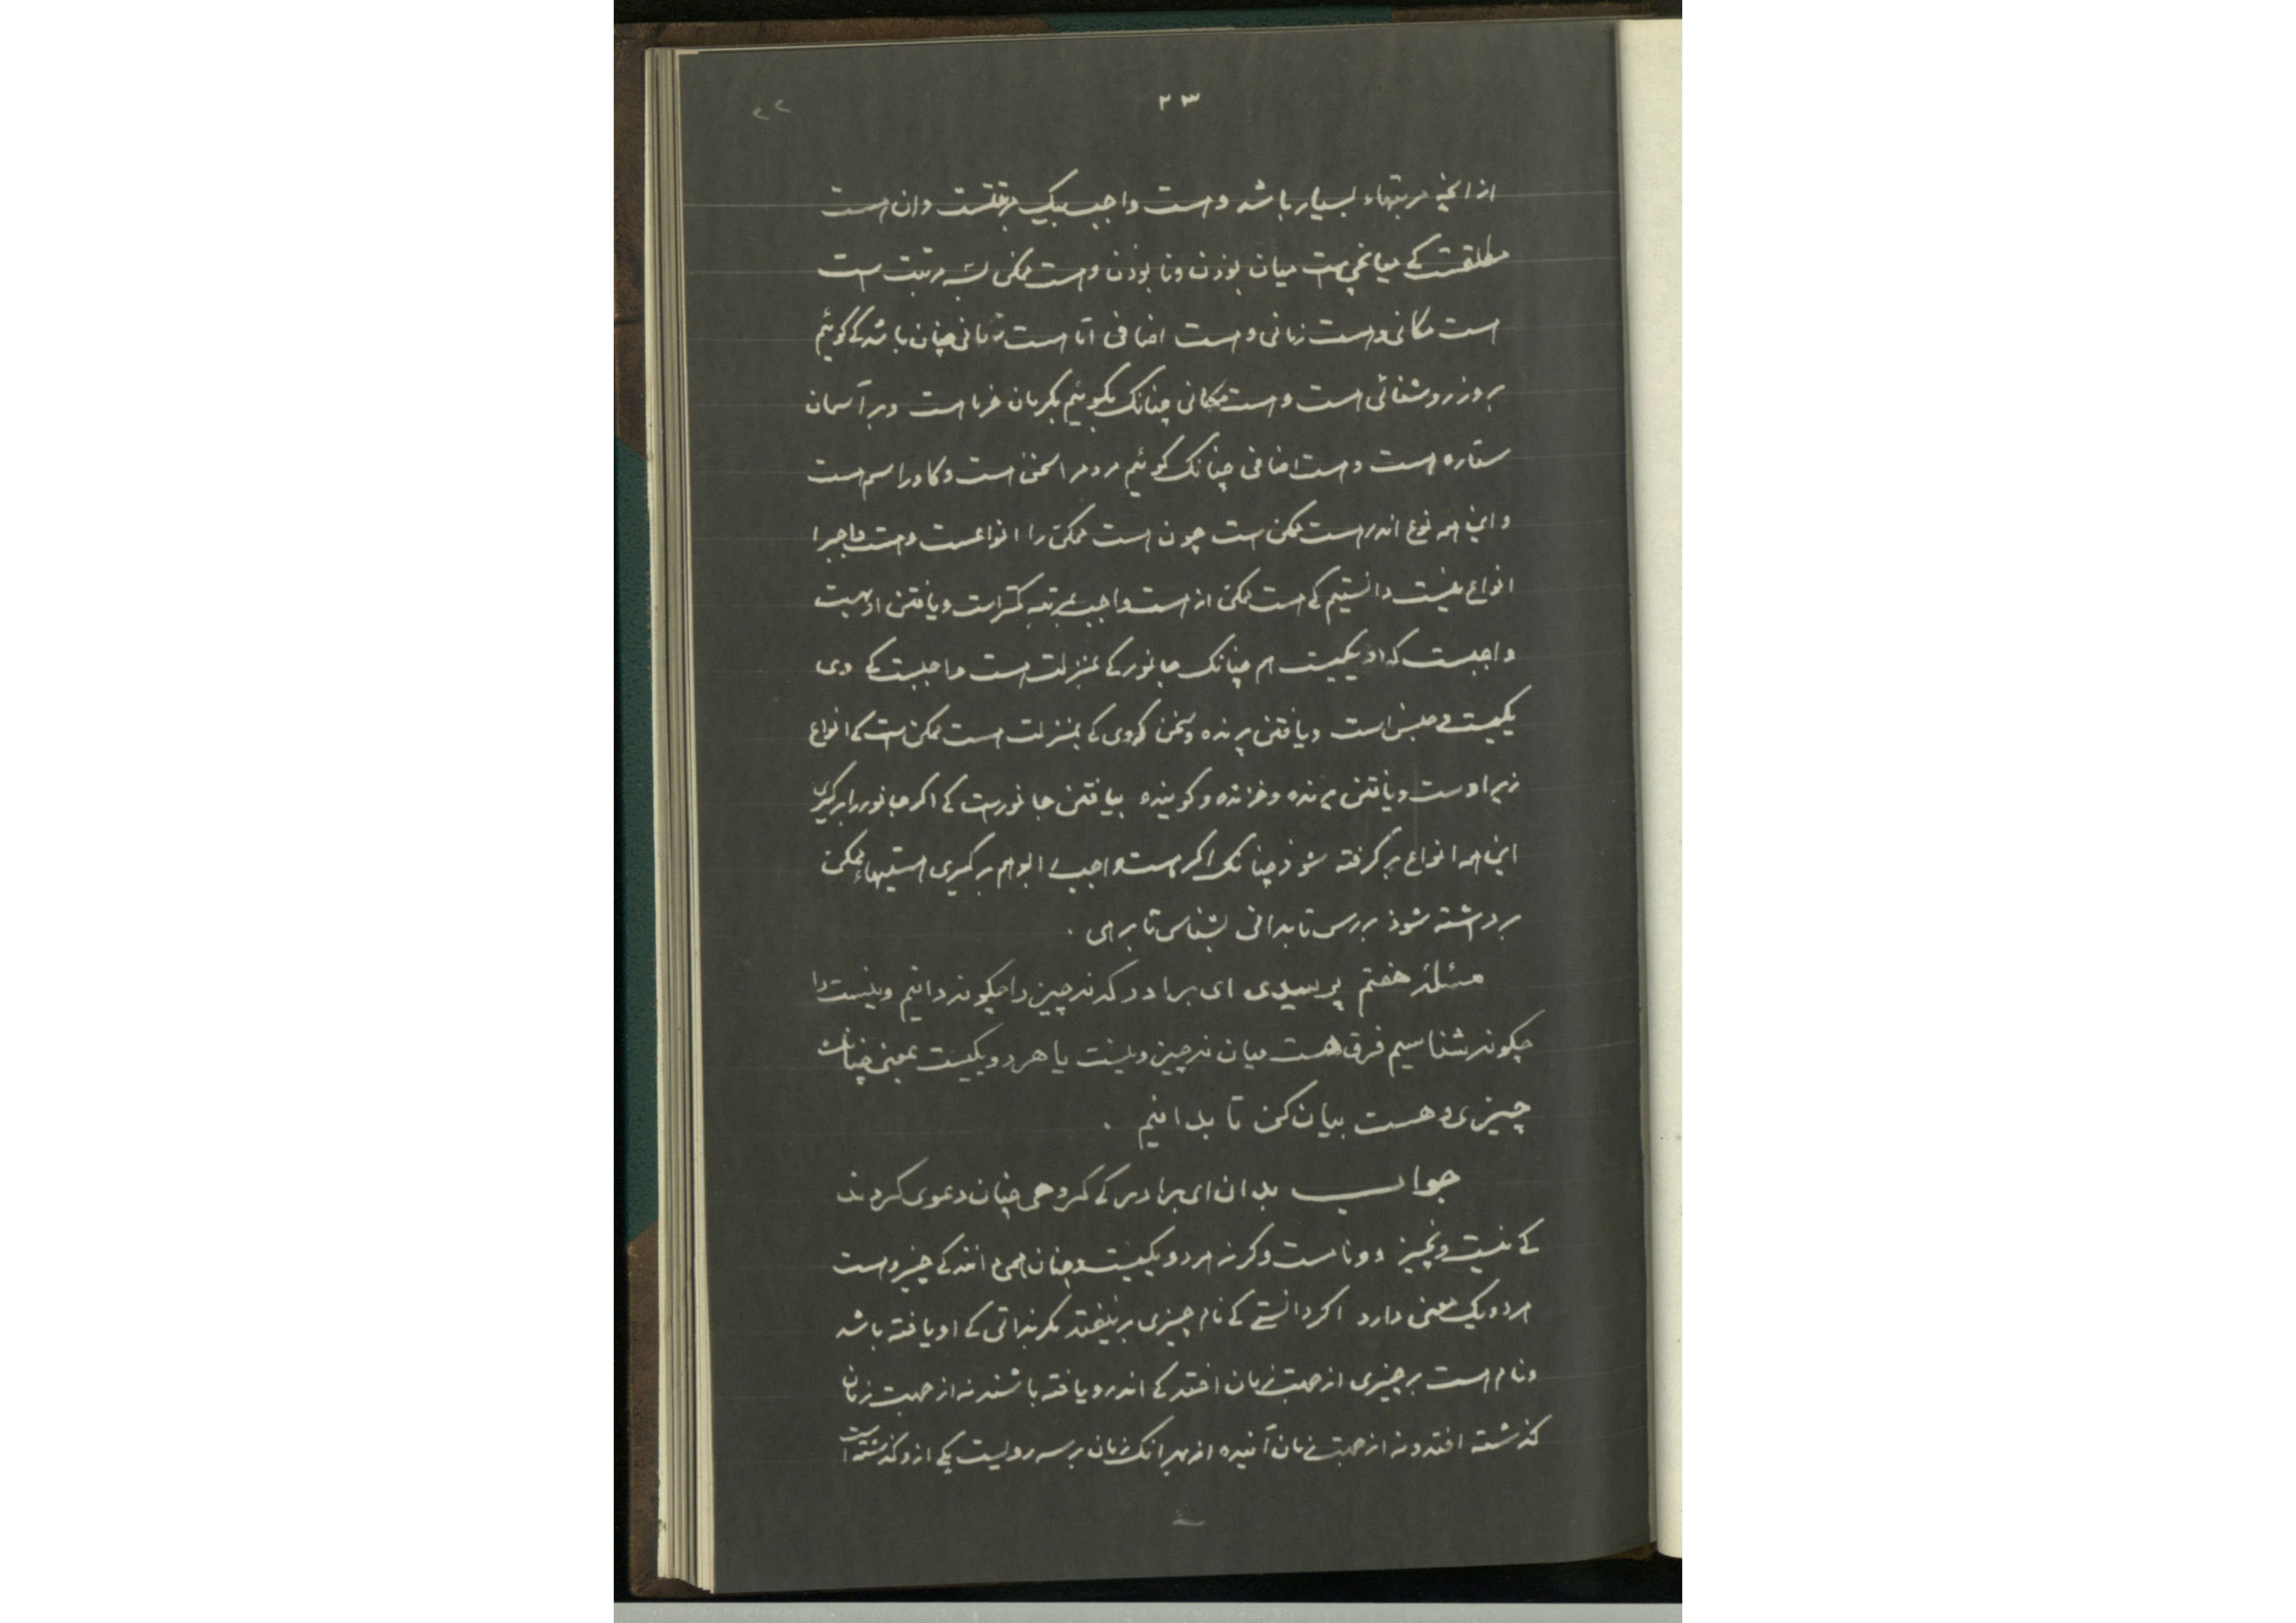 ۲۳
از انچه مرتبتهاء بسیار باشد و هست واجب بیک مرتبتست و ان هست
مطلقست کی میانجی هست میان بوذن و نا بوذن و هست ممکن بسه مرتبت است
هست مکانی و هست زمانی و هست اضافی اما هست زمانی چنان باشد کی گوئیم
بروز روشنائی است و هست مکانی چنانک بگوئیم بکرمان خرما هست و بر آسمان
ستاره هست و هست اضافی چنانک گوئیم مردم را سخن است و گاو را سم است
و این همه نوع اندر هست ممکن است چون هست ممکن را انواعست و هست واجب را
انواع نیست دانستیم کی هست ممکن از هست واجب بمرتبه کمتر است و یافتن او بهست
واجبست که او یکیست هم چنانک جانور کی بمنزلت هست واجبست کی وی
یکیست و جنس است و یافتن پرنده و سخن گوی کی بمنزلت هست ممکن است کی انواع
زیر اوست و یافتن پرنده و خزنده و گوینده بیافتن جانورست کی اگر جانور را برگیری
این همه انواع برگرفته شوذ چنانک اگر هست واجب را بوهم برگیری هستیهاء ممکن
برداشته شوذ بررس تا بدانی بشناس تا برهی .
مسئله هفتم پرسیدی ای برادر که نه چیز را چگونه دانیم و نیست را
چگونه شناسیم فرق هست میان نه چیز و نیست یا هر دو یکیست بمعنی چنانک
چیزی و هست بیان کن تا بدانیم .
جواب بدان ای برادر کی گروهی چنان دعوی کردند
کی نیست و نچیز دو نامست و گرنه هر دو یکیست و چنان همی دانند کی چیز و هست
هر دو یک معنی دارد اگر دانستی کی نام چیزی بر نیفتد مگر بذاتی کی او یافته باشد
و نام هست بر چیزی از جهت زمان افتد کی اندرو یافته باشند نه از جهت زمان
گذشته افتد و نه از جهت زمان آینده از بهر انک زمان بر سه رویست یکی ازو گذشته است